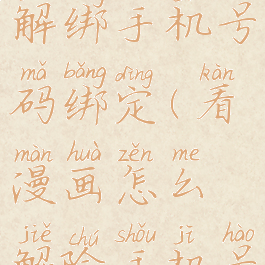 解绑手机号
mǎ bǎng dìng kàn
码绑定(看
màn huà zěn me
漫画怎么
jiě chú shǒu jī hào
解除手机号